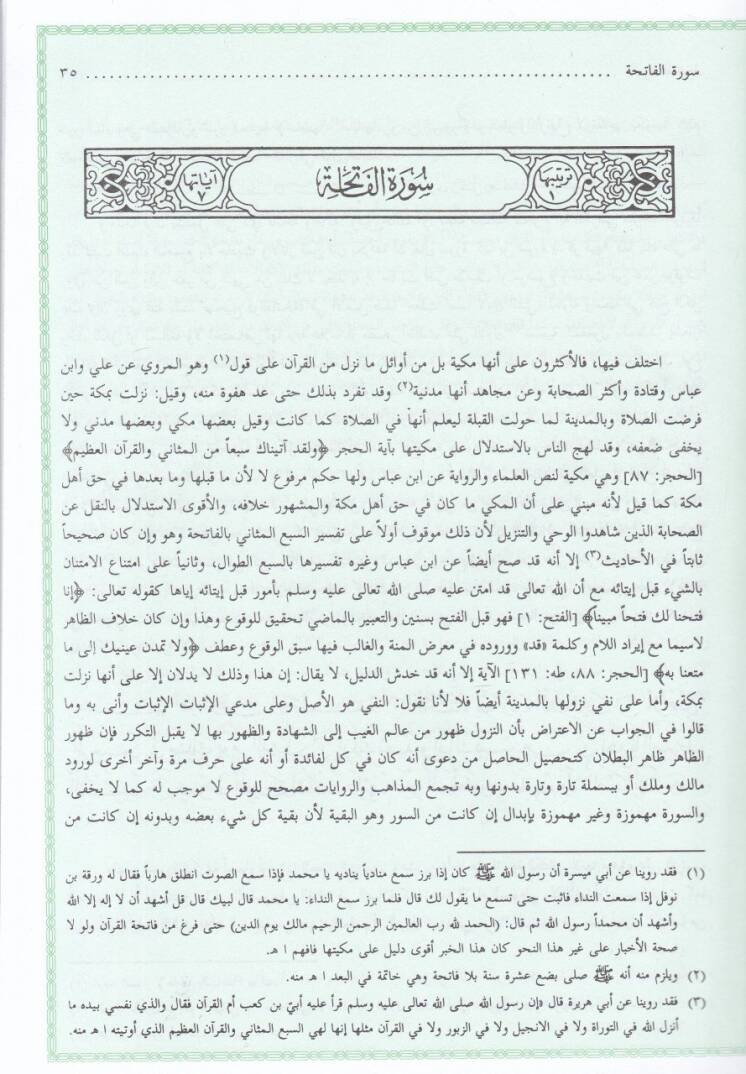 سورة الفاتحة ........................................................................ ٣٥
ترتيبها ١ سورة الفاتحة آياتها ٧
اختلف فيها، فالأكثرون على أنها مكية بل من أوائل ما نزل من القرآن على قول(١) وهو المروي عن علي وابن
عباس وقتادة وأكثر الصحابة وعن مجاهد أنها مدنية(٢) وقد تفرد بذلك حتى عد هفوة منه، وقيل: نزلت بمكة حين
فرضت الصلاة وبالمدينة لما حولت القبلة ليعلم أنها في الصلاة كما كانت وقيل بعضها مكي وبعضها مدني ولا
يخفى ضعفه، وقد لهج الناس بالاستدلال على مكيتها بآية الحجر ﴿ولقد آتيناك سبعاً من المثاني والقرآن العظيم﴾
[الحجر: ٨٧] وهي مكية لنص العلماء والرواية عن ابن عباس ولها حكم مرفوع لا لأن ما قبلها وما بعدها في حق أهل
مكة كما قيل لأنه مبني على أن المكي ما كان في حق أهل مكة والمشهور خلافه، والأقوى الاستدلال بالنقل عن
الصحابة الذين شاهدوا الوحي والتنزيل لأن ذلك موقوف أولاً على تفسير السبع المثاني بالفاتحة وهو وإن كان صحيحاً
ثابتاً في الأحاديث(٣) إلا أنه قد صح أيضاً عن ابن عباس وغيره تفسيرها بالسبع الطوال، وثانياً على امتناع الامتنان
بالشيء قبل إيتائه مع أن الله تعالى قد امتن عليه صلى الله تعالى عليه وسلم بأمور قبل إيتائه إياها كقوله تعالى: ﴿إنا
فتحنا لك فتحاً مبينا﴾ [الفتح: ١] فهو قبل الفتح بسنين والتعبير بالماضي تحقيق للوقوع وهذا وإن كان خلاف الظاهر
لاسيما مع إيراد اللام وكلمة «قد» ووروده في معرض المنة والغالب فيها سبق الوقوع وعطف ﴿ولا تمدن عينيك إلى ما
متعنا به﴾ [الحجر: ٨٨، طه: ١٣١] الآية إلا أنه قد خدش الدليل، لا يقال: إن هذا وذلك لا يدلان إلا على أنها نزلت
بمكة، وأما على نفي نزولها بالمدينة أيضاً فلا لأنا نقول: النفي هو الأصل وعلى مدعي الإثبات الإثبات وأنى به وما
قالوا في الجواب عن الاعتراض بأن النزول ظهور من عالم الغيب إلى الشهادة والظهور بها لا يقبل التكرر فإن ظهور
الظاهر ظاهر البطلان كتحصيل الحاصل من دعوى أنه كان في كل لفائدة أو أنه على حرف مرة وآخر أخرى لورود
مالك وملك أو ببسملة تارة وتارة بدونها وبه تجمع المذاهب والروايات مصحح للوقوع لا موجب له كما لا يخفى،
والسورة مهموزة وغير مهموزة بإبدال إن كانت من السور وهو البقية لأن بقية كل شيء بعضه وبدونه إن كانت من
(١) فقد روينا عن أبي ميسرة أن رسول الله ﷺ كان إذا برز سمع منادياً يناديه يا محمد فإذا سمع الصوت انطلق هارباً فقال له ورقة بن
نوفل إذا سمعت النداء فاثبت حتى تسمع ما يقول لك قال فلما برز سمع النداء: يا محمد قال لبيك قال قل أشهد أن لا إله إلا الله
وأشهد أن محمداً رسول الله ثم قال: (الحمد لله رب العالمين الرحمن الرحيم مالك يوم الدين) حتى فرغ من فاتحة القرآن ولو لا
صحة الأخبار على غير هذا النحو كان هذا الخبر أقوى دليل على مكيتها فافهم ا هـ.
(٢) ويلزم منه أنه ﷺ صلى بضع عشرة سنة بلا فاتحة وهي خاتمة في البعد ا هـ منه.
(٣) فقد روينا عن أبي هريرة قال «إن رسول الله صلى الله تعالى عليه وسلم قرأ عليه أبيّ بن كعب أم القرآن فقال والذي نفسي بيده ما
أنزل الله في التوراة ولا في الانجيل ولا في الزبور ولا في القرآن مثلها إنها لهي السبع المثاني والقرآن العظيم الذي أوتيته ا هـ منه.